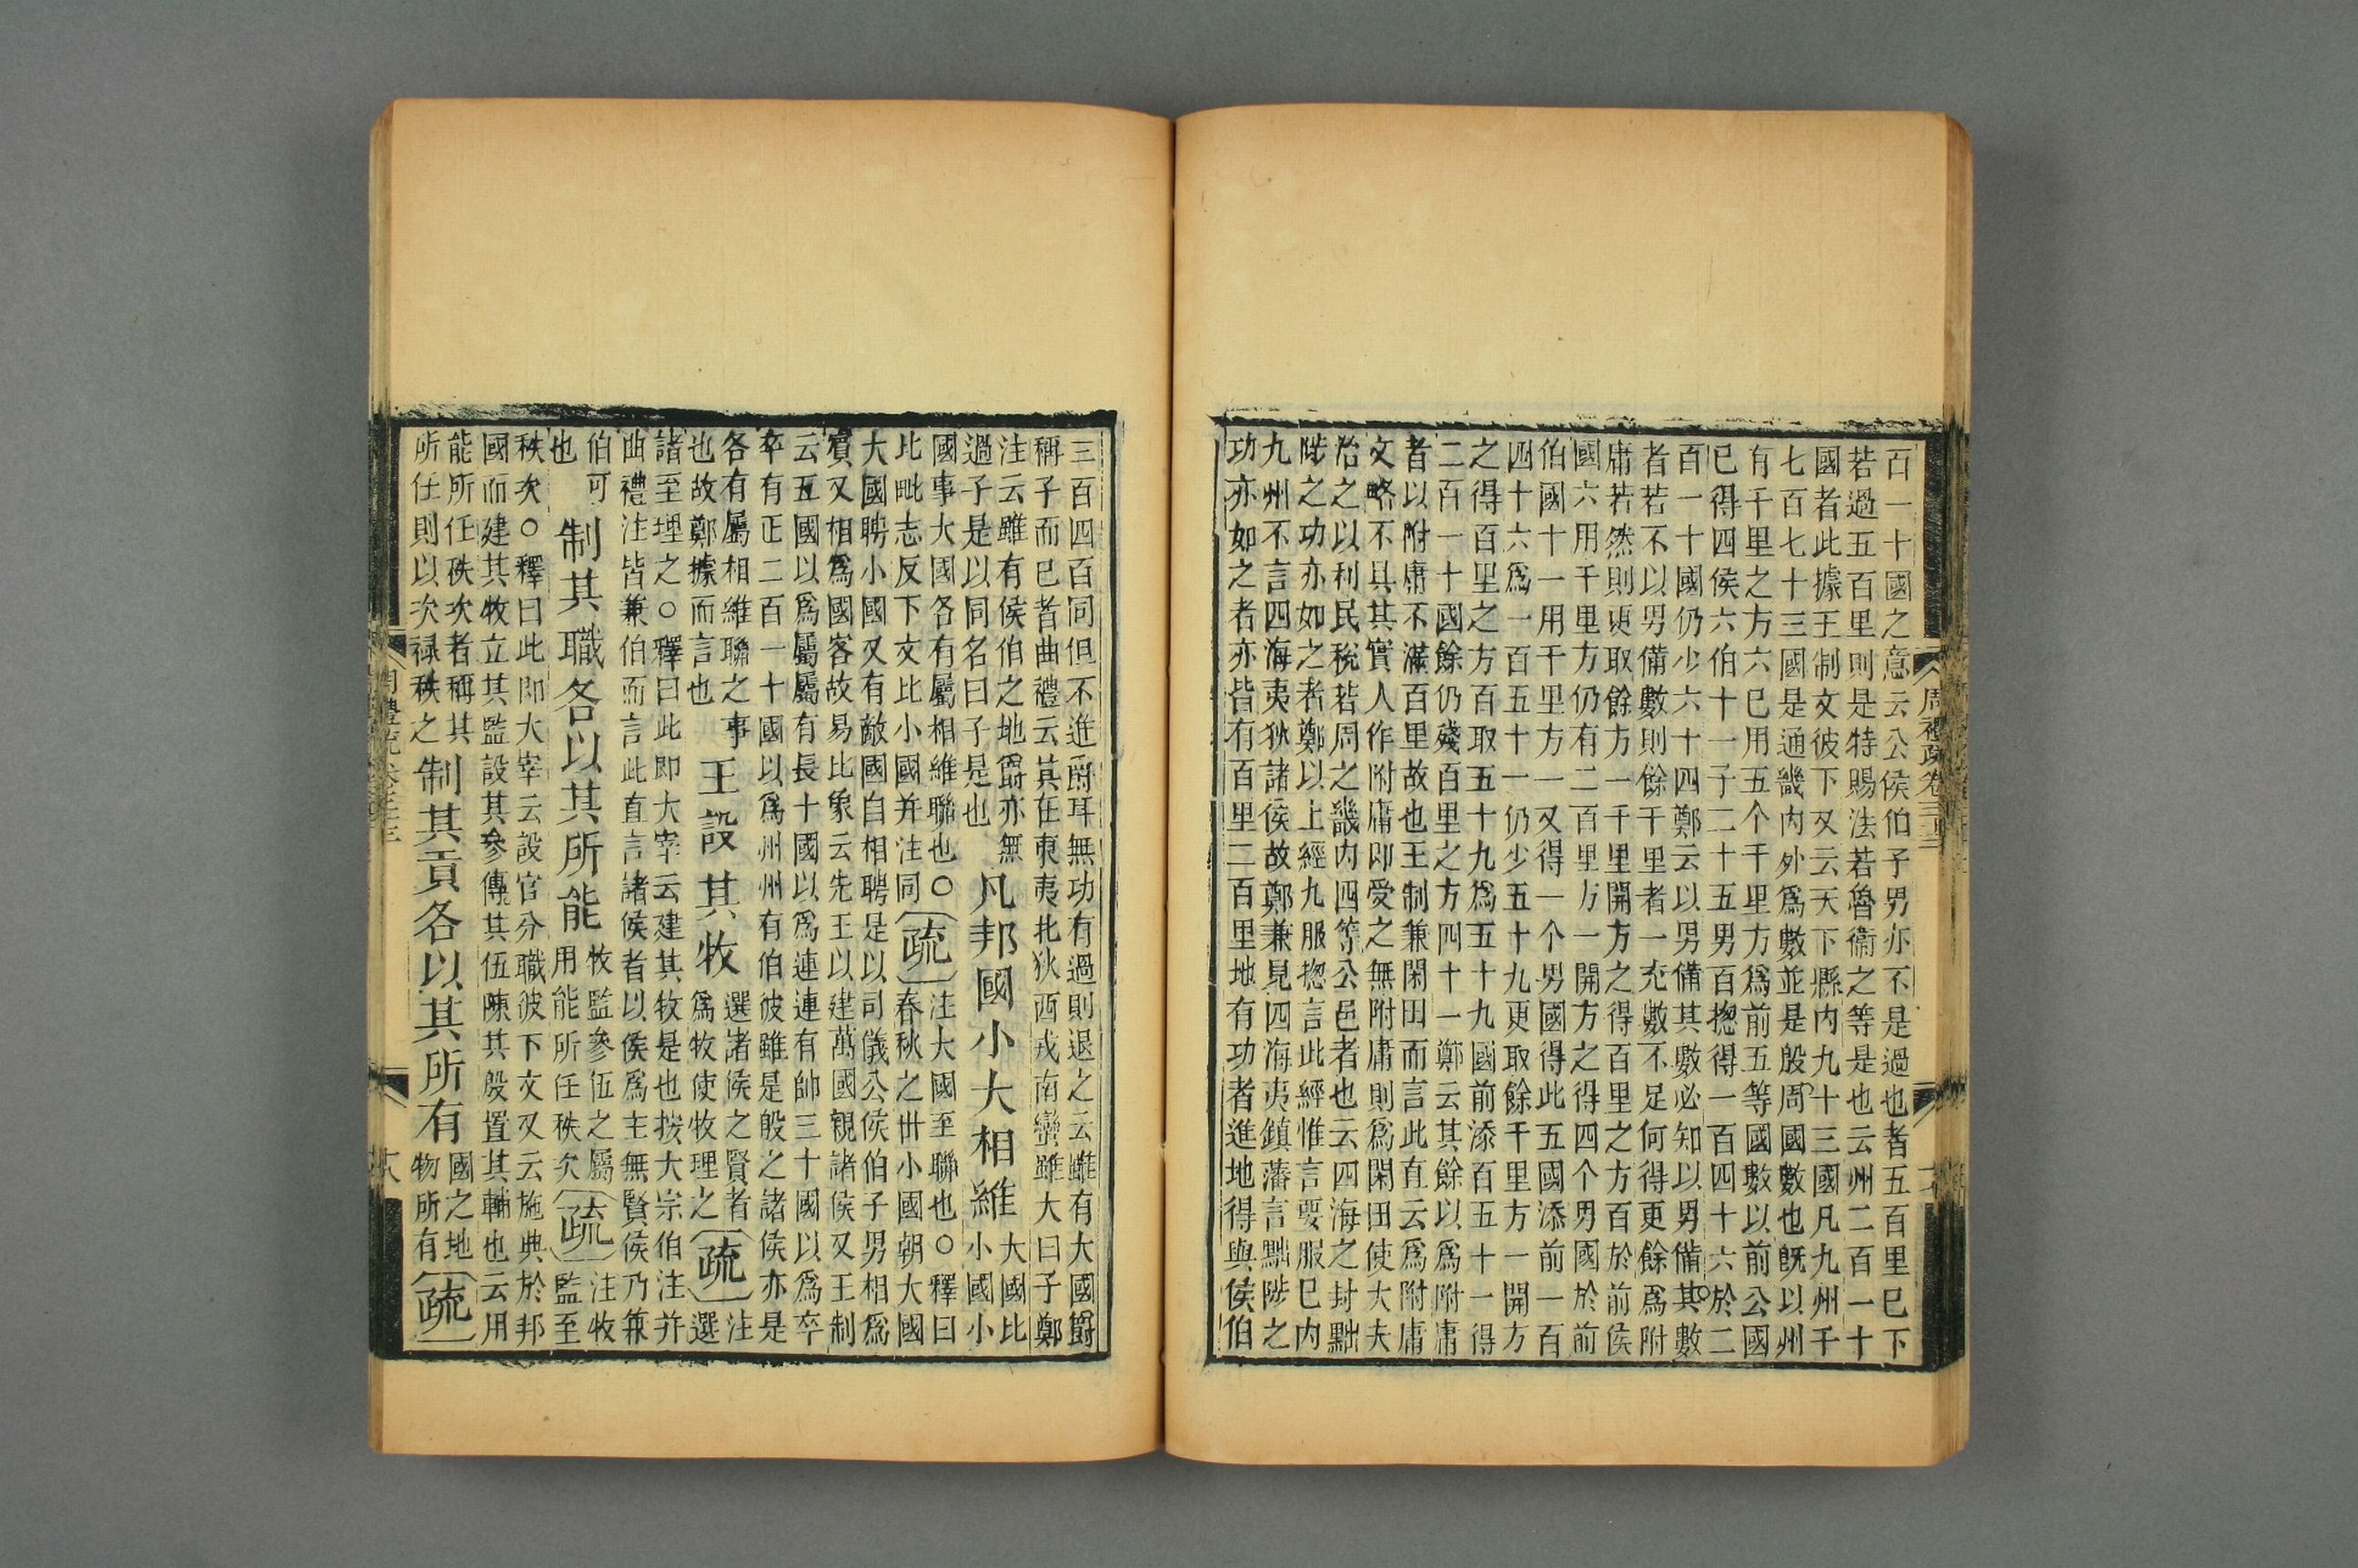 百一十國之意云公侯伯子男亦不是過也者五百里已下
若過五百里則是特賜法若魯衞之等是也云州二百一十
國者此據王制文彼下又云天下縣內九十三國凡九州千
七百七十三國是通畿內外爲數並是殷周國數也旣以州
有千里之方六已用五个千里方爲前五等國數以前公國
已得四侯六伯十一子二十五男百揔得一百四十六於二
百一十國仍少六十四鄭云以男備其數必知以男備其數
者若不以男備數則餘千里者一充數不足何得更餘爲附
庸若然則更取餘方一千里開方之得百里之方百於前侯
國六用千里方仍有二百里方一開方之得四个男國於前
伯國十一用千里方一又得一个男國得此五國添前一百
四十六爲一百五十一仍少五十九更取餘千里方一開方
之得百里之方百取五十九爲五十九國前添百五十一得
二百一十國餘仍殘百里之方四十一鄭云其餘以爲附庸
者以附庸不滿百里故也王制兼閑田而言此直云爲附庸
文略不具其實人作附庸卽受之無附庸則爲閑田使大夫
治之以利民稅若周之畿內四等公邑者也云四海之封黜
陟之功亦如之者鄭以上經九服揔言此經惟言要服已內
九州不言四海夷狄諸侯故鄭兼見四海夷鎮藩言黜陟之
功亦如之者亦皆有百里二百里地有功者進地得與侯伯
周禮疏卷三十三
三百四百同但不進爵耳無功有過則退之云雖有大國爵
稱子而已者曲禮云其在東夷北狄西戎南蠻雖大曰子鄭
注云雖有侯伯之地爵亦無
過子是以同名曰子是也
凡邦國小大相維
大國比
小國小
國事大國各有屬相維聯也○疏注大國至聯也○釋曰
比毗志反下文比小國并注同春秋之世小國朝大國
大國聘小國又有敵國自相聘是以司儀公侯伯子男相爲
賓又相爲國客故易比象云先王以建萬國親諸侯又王制
云五國以爲屬屬有長十國以爲連連有帥三十國以爲卒
卒有正二百一十國以爲州州有伯彼雖是殷之諸侯亦是
各有屬相維聯之事
也故鄭據而言也
王設其牧
選諸侯之賢者
爲牧使牧理之
疏
注
選
諸至理之○釋曰此即大宰云建其牧是也按大宗伯注并
曲禮注皆兼伯而言此直言諸侯者以侯爲主無賢侯乃兼
伯可
也
制其職各以其所能
牧監參伍之屬
用能所任秩次
疏
注牧
監至
秩次○釋曰此即大宰云設官分職彼下文又云施典於邦
國而建其牧立其監設其參傅其伍陳其殷置其輔也云用
能所任秩次者稱其
所任則以次祿秩之
制其貢各以其所有
國之地
物所有
疏